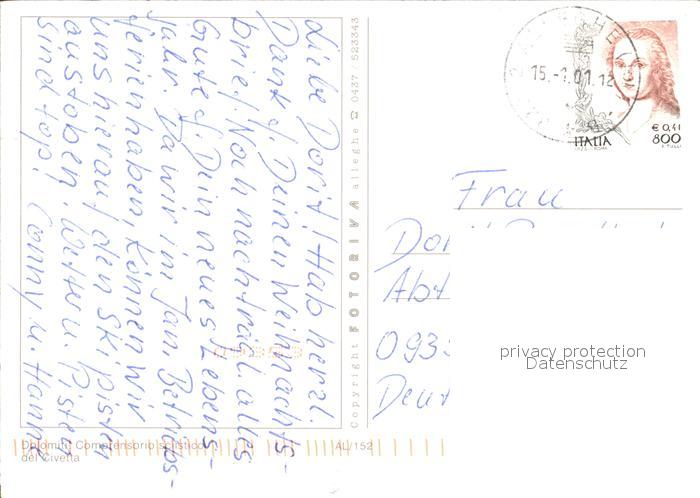 Liebe Dorit! Hab herzl.
Dank f. Deinen Weihnachts-
brief. Noch nachträgl. alles
Gute f. Dein neues Lebens-
jahr. Da wir im Jan. Betriebs-
ferien haben, können wir
uns hier auf den Skipisten
austoben. Wetter u. Pisten
sind top! Conny u. Hanne
Copyright FOTORIVA alleghe ☎ 0437 / 523343
15.-1.01.12
ITALIA
€ 0,41
800
Frau
Dorit
Abt
093
Deut
privacy protection
Datenschutz
Dolomiti Comprensorio sciistico
del Civetta
AL/152